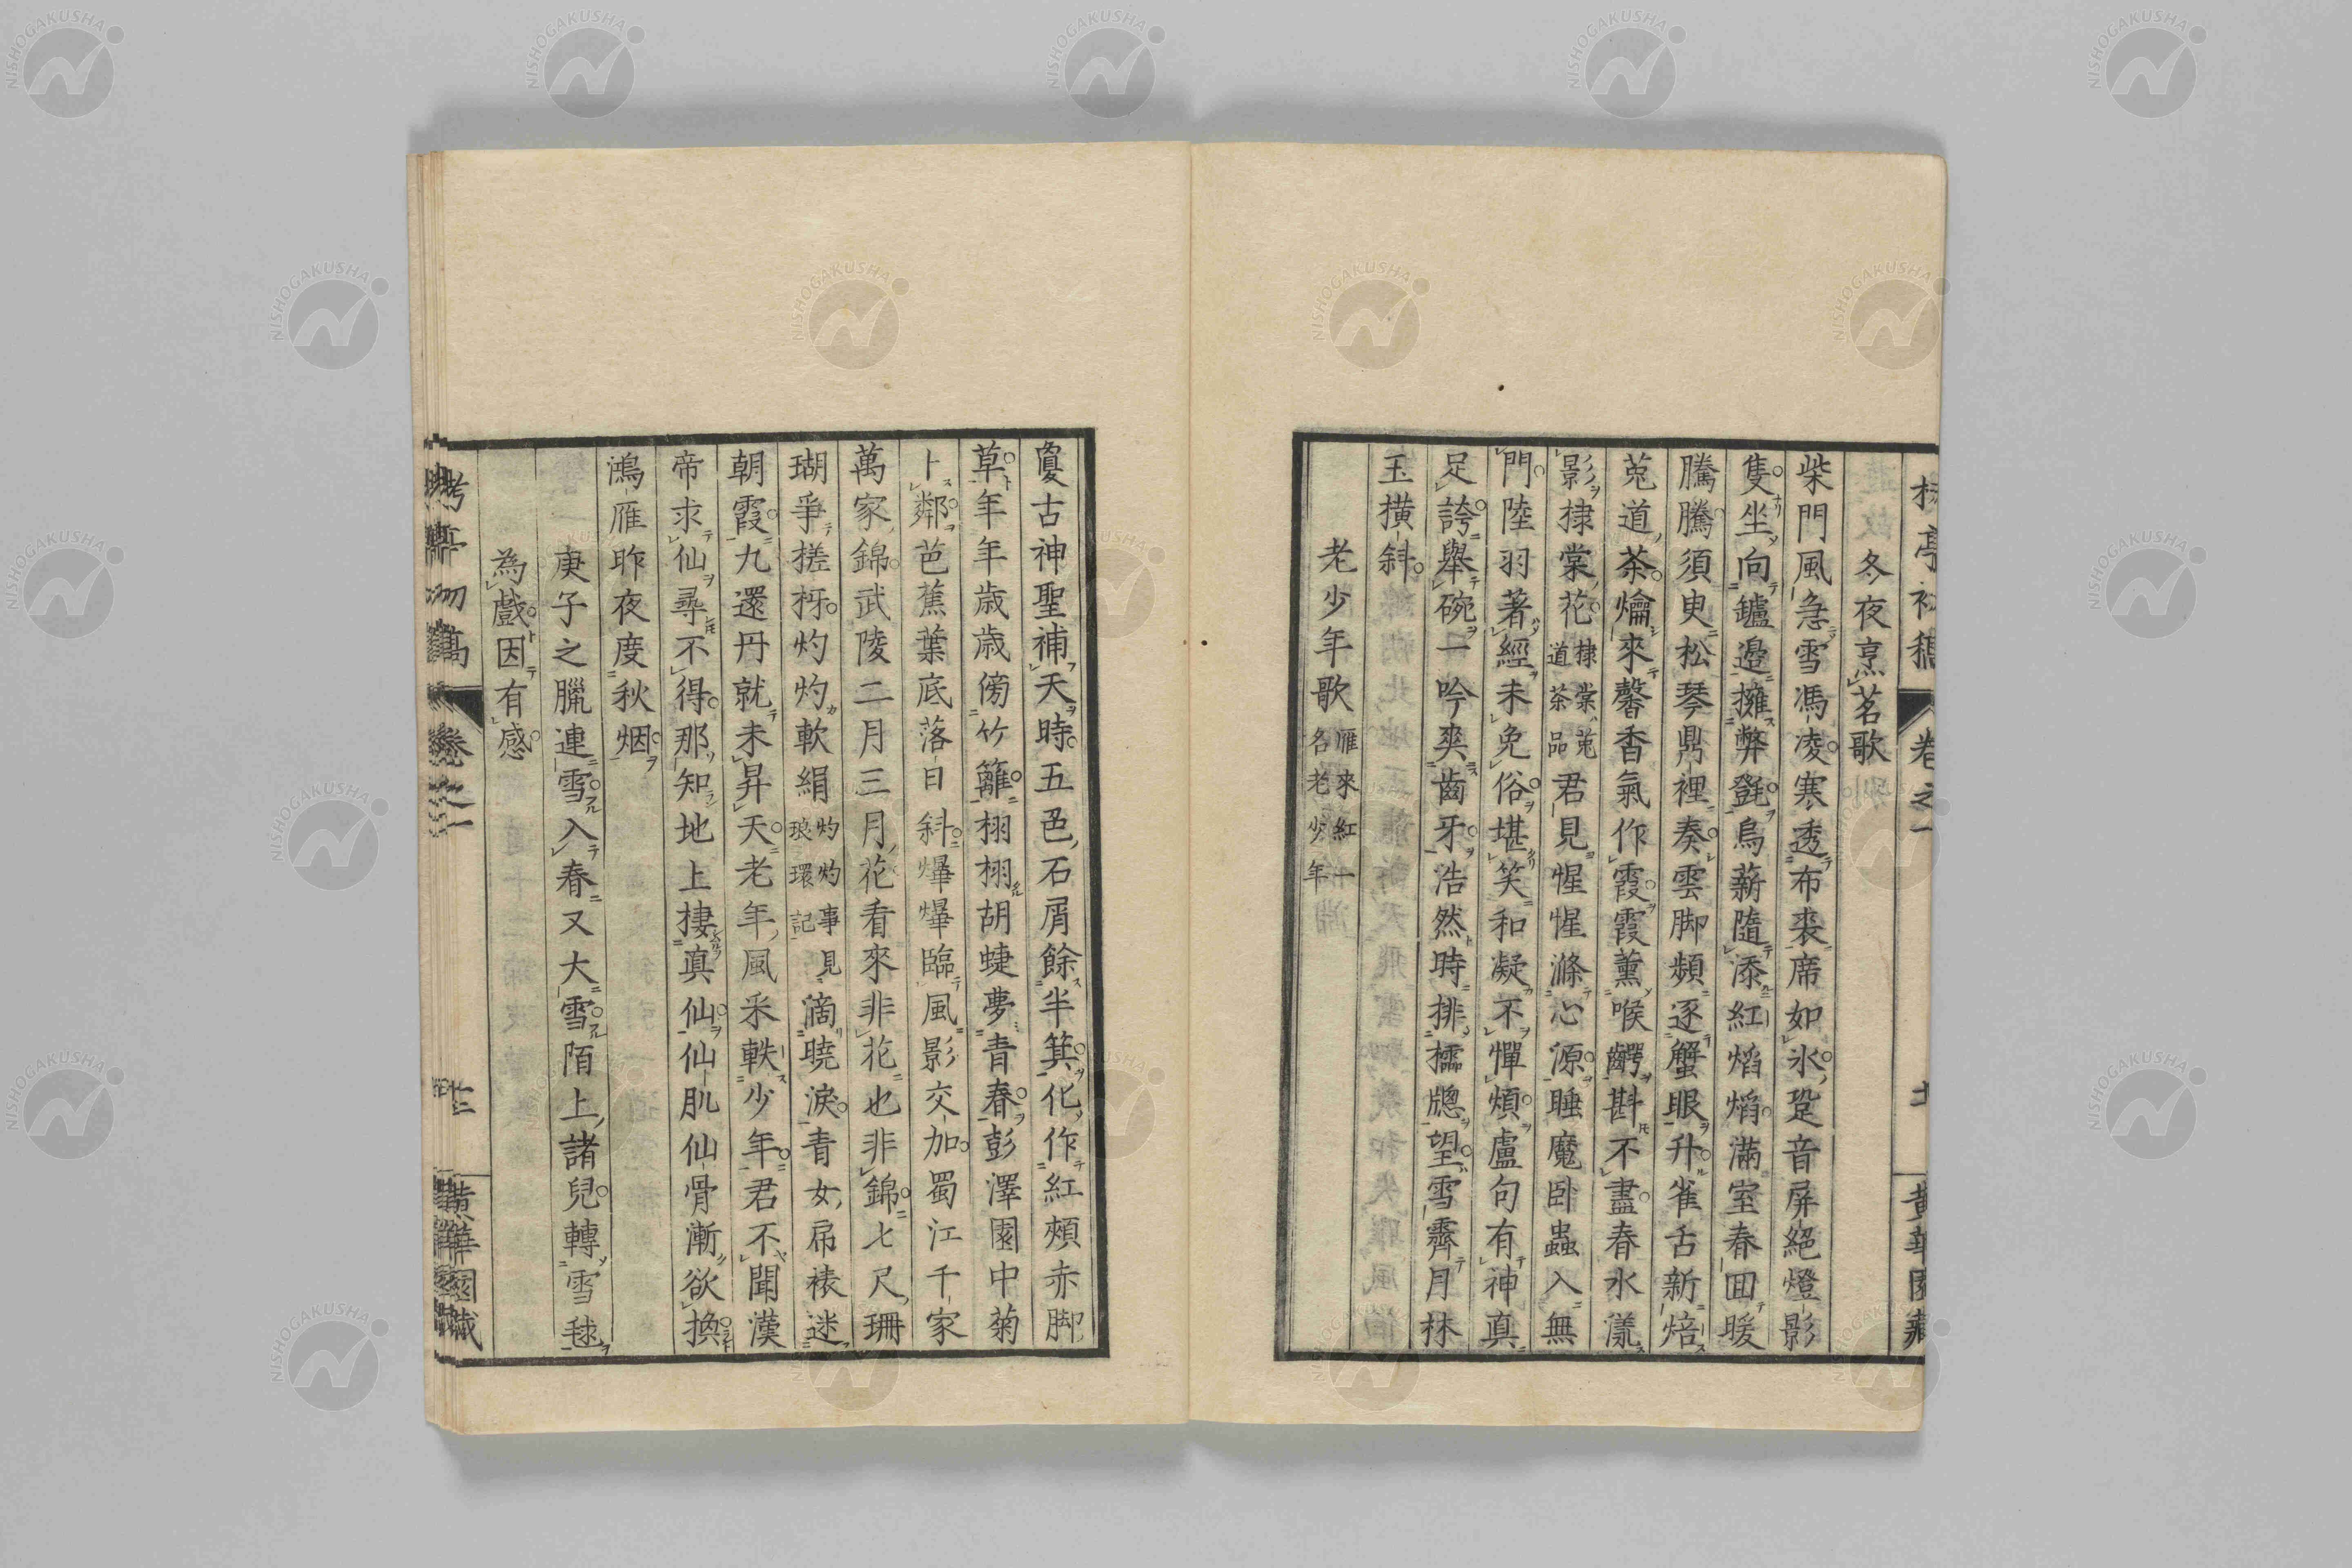 冬夜烹茗歌
柴門風急雪馮凌寒透布裘席如氷跫音屏絕燈影
隻坐向鑪邉擁弊㲪烏薪隨添紅焰焰滿室春回暖
騰騰須臾松琴鼎裡奏雲脚頻逐蟹眼升雀舌新焙
莵道茶爚來馨香氣作霞霞薰喉齶斟不盡春水漾
影棣棠花棣棠莵道茶品君見惺惺滌心源睡魔卧蟲入無
門陸羽著經未免俗堪笑和凝不憚煩盧句有神真
足誇舉碗一吟爽齒牙浩然時排櫺牕望雪霽月林
玉橫斜
老少年歌雁來紅一名老少年
敻古神聖補天時五色石屑餘半箕化作紅頰赤脚
草年年歳歳傍竹籬栩栩胡蜨夢青春彭澤園中菊
卜鄰芭蕉葉底落日斜燁燁臨風影交加蜀江千家
萬家錦武陵二月三月花看來非花也非錦七尺珊
瑚爭搓枒灼灼軟絹灼灼事見琅環記滴曉淚青女帬裱迷
朝霞九還丹就未昇天老年風采軼少年君不聞漢
帝求仙尋不得那知地上捿真仙仙肌仙骨漸欲換
鴻雁昨夜度秋烟
庚子之臘連雪入春又大雪陌上諸兒轉雪毬
為戲因有感
卷之一